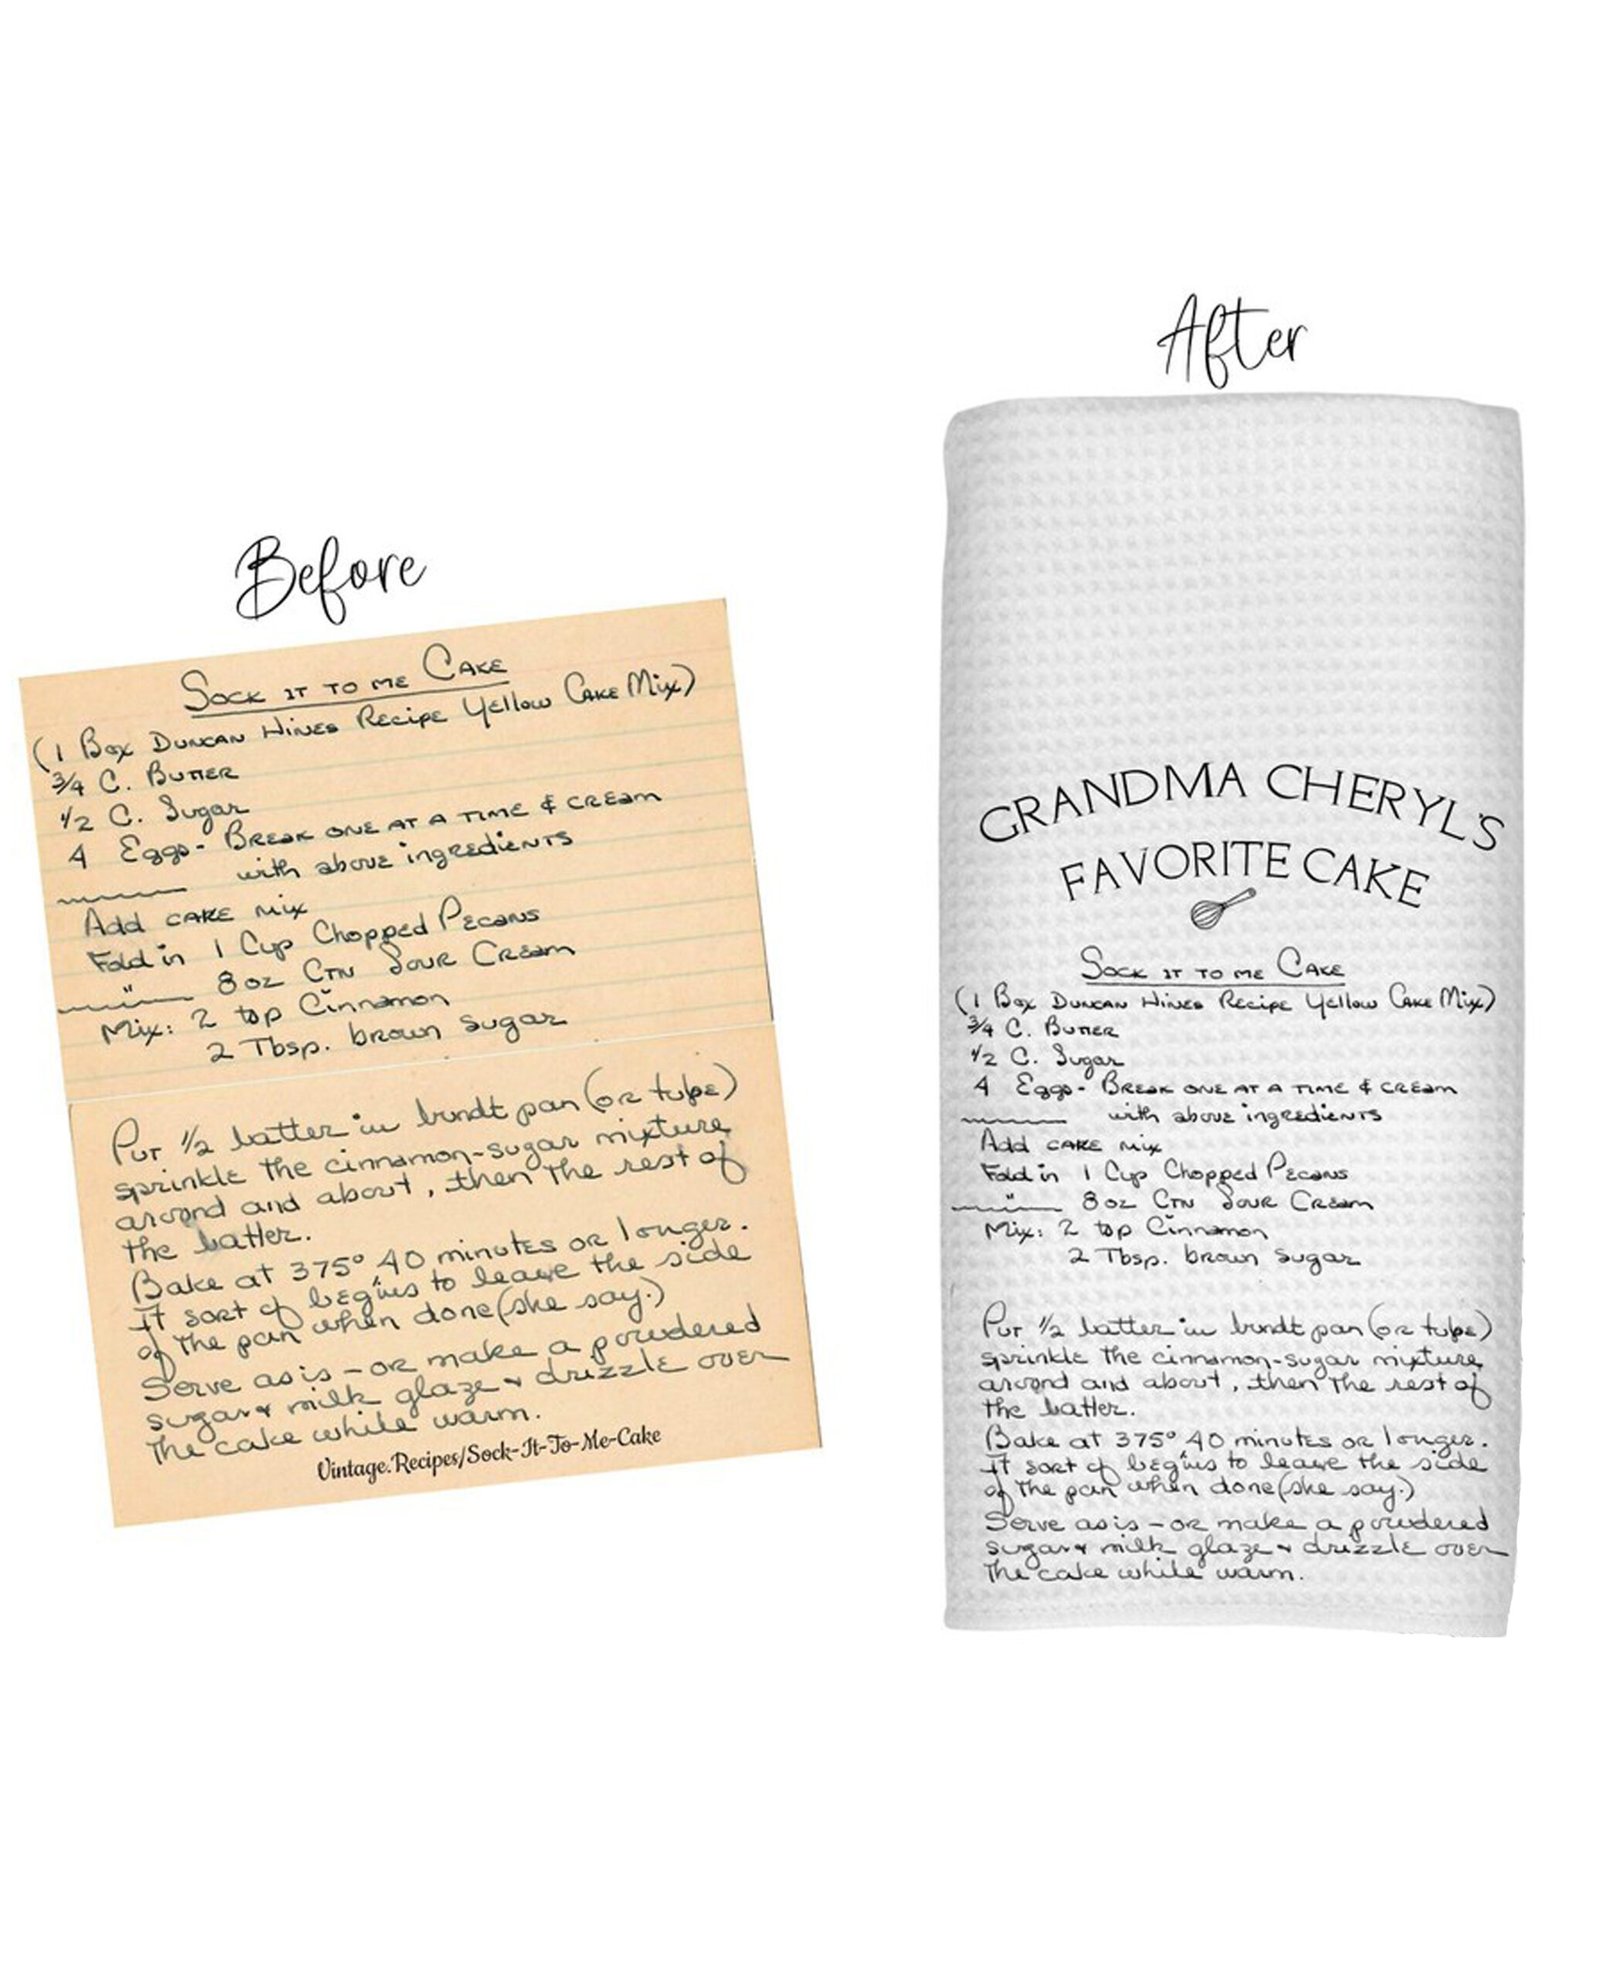 Before
Sock it to me Cake
(1 Box Duncan Hines Recipe Yellow Cake Mix)
3/4 C. Butter
1/2 C. Sugar
4 Eggs - Break one at a time & cream
with above ingredients
Add cake mix
Fold in 1 Cup Chopped Pecans
" 8 oz Ctn Sour Cream
Mix: 2 tsp Cinnamon
2 Tbsp. brown sugar
Put 1/2 batter in bundt pan (or tube)
sprinkle the cinnamon-sugar mixture
around and about, then the rest of
the batter.
Bake at 375° 40 minutes or longer.
It sort of begins to leave the side
of the pan when done (she say.)
Serve as is - or make a powdered
sugar & milk glaze & drizzle over
the cake while warm.
Vintage.Recipes/Sock-It-To-Me-Cake
After
GRANDMA CHERYL'S
FAVORITE CAKE
Sock it to me Cake
(1 Box Duncan Hines Recipe Yellow Cake Mix)
3/4 C. Butter
1/2 C. Sugar
4 Eggs - Break one at a time & cream
with above ingredients
Add cake mix
Fold in 1 Cup Chopped Pecans
" 8 oz Ctn Sour Cream
Mix: 2 tsp Cinnamon
2 Tbsp. brown sugar
Put 1/2 batter in bundt pan (or tube)
sprinkle the cinnamon-sugar mixture
around and about, then the rest of
the batter.
Bake at 375° 40 minutes or longer.
It sort of begins to leave the side
of the pan when done (she say.)
Serve as is - or make a powdered
sugar & milk glaze & drizzle over
the cake while warm.